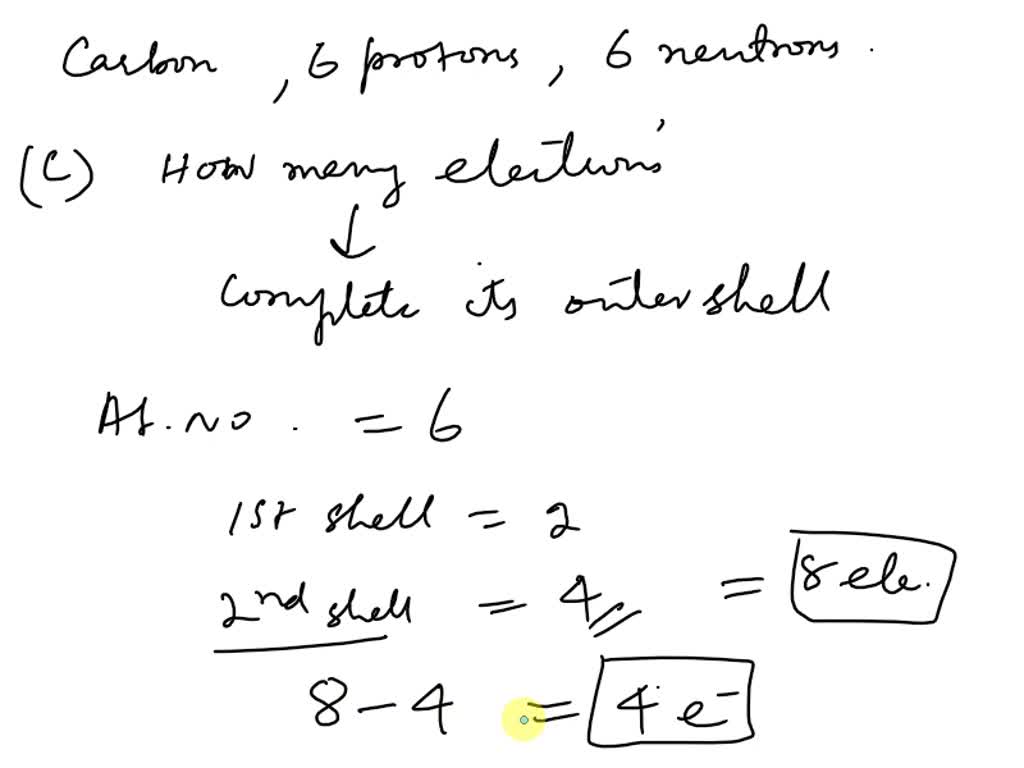 Carbon , 6 protons , 6 neutrons .
(C) How many electrons
↓
Complete its outershell
At. no . = 6
1st shell = 2
2nd shell = 4 = 8 ele.
8 - 4 = 4 e⁻